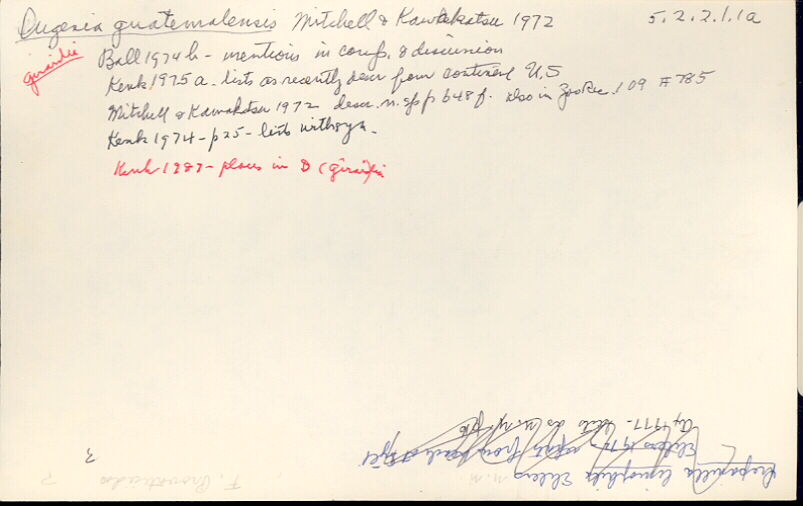 Dugesia guatemalensis Mitchell & Kawakatsu 1972 5.2.2.1.1a
girardia
Ball 1974b - mentions in comp. & discussion
Kenk 1975a - lists as recently descr from continent U.S
Mitchell & Kawakatsu 1972 descr. n. sp p 648 f. also in Zoo Rec. 109 # 785
Kenk 1974 - p25 - lists with syn.
Kenk 1987 - places in D (girardia)
Ehlers